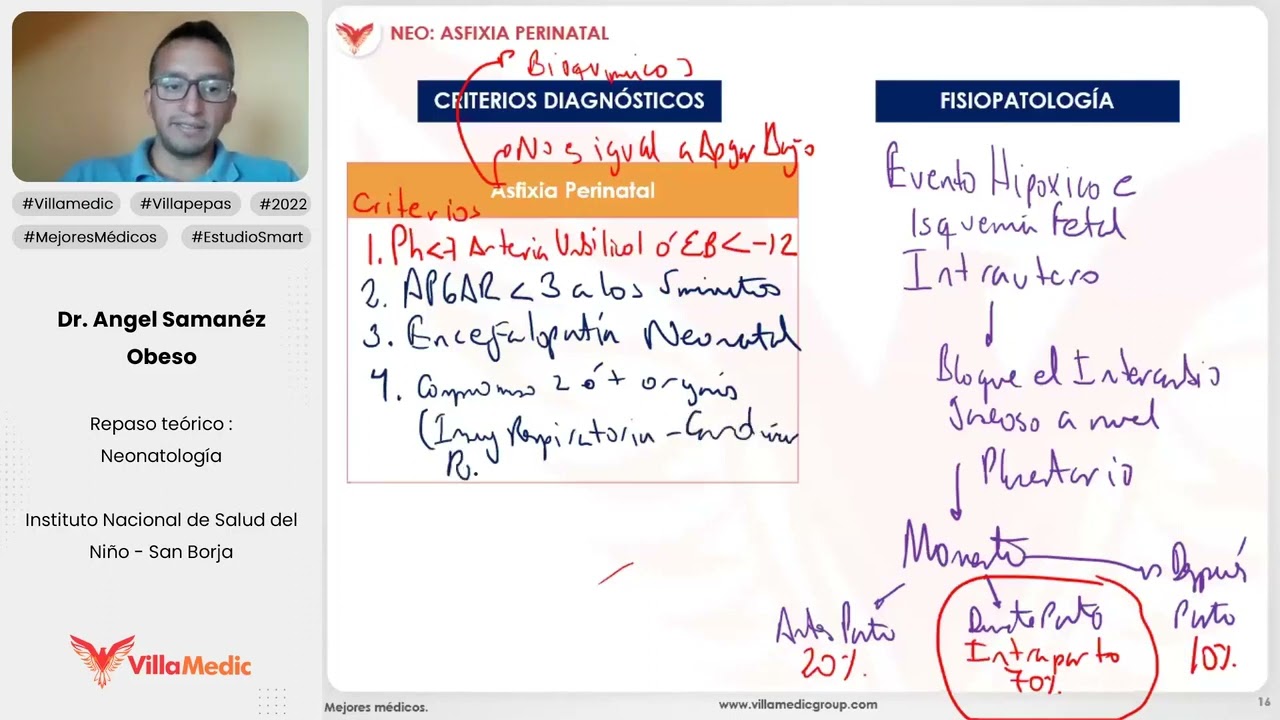 #Villamedic
#Villapepas
#2022
#MejoresMédicos
#EstudioSmart
Dr. Angel Samanéz
Obeso
Repaso teórico :
Neonatología
Instituto Nacional de Salud del
Niño - San Borja
VillaMedic
NEO: ASFIXIA PERINATAL
Bioquimico
CRITERIOS DIAGNÓSTICOS
No es igual a Apgar Bajo
Asfixia Perinatal
Criterios
1. Ph<7 Arteria Umbilical ó EB<-12
2. APGAR < 3 a los 5 minutos
3. Encefalopatía Neonatal
4. Compromiso 2 ó + organos
(Inmu Respiratoria - Cardiov
R.
FISIOPATOLOGÍA
Evento Hipoxico e
Isquemia Fetal
Intrautero
Bloque el Intercambio
gaseoso a nivel
Placentario
Momento
Antes Parto
20%
Durante Parto
Intraparto
70%
Después
Parto
10%
Mejores médicos.
www.villamedicgroup.com
16